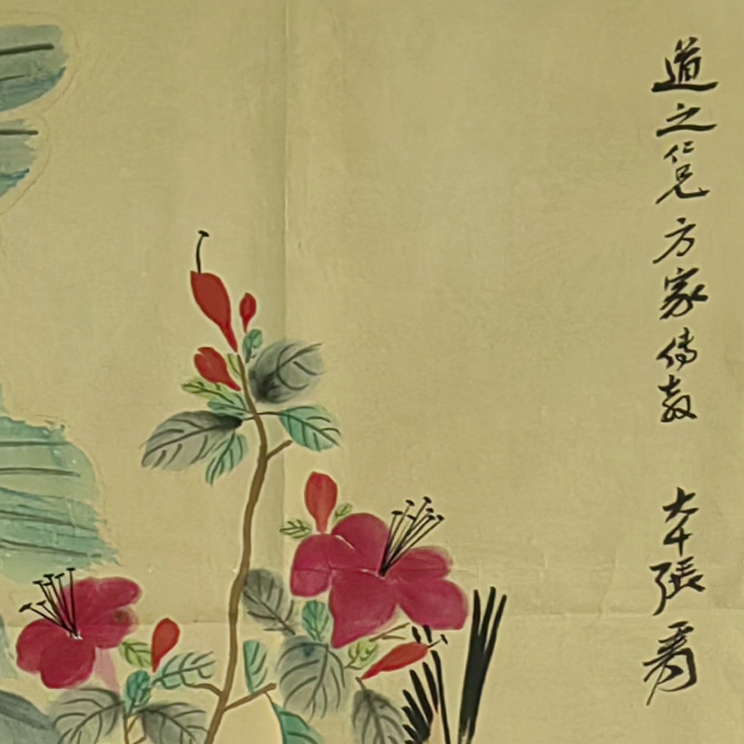 道之仁兄方家傳教 大千張爰